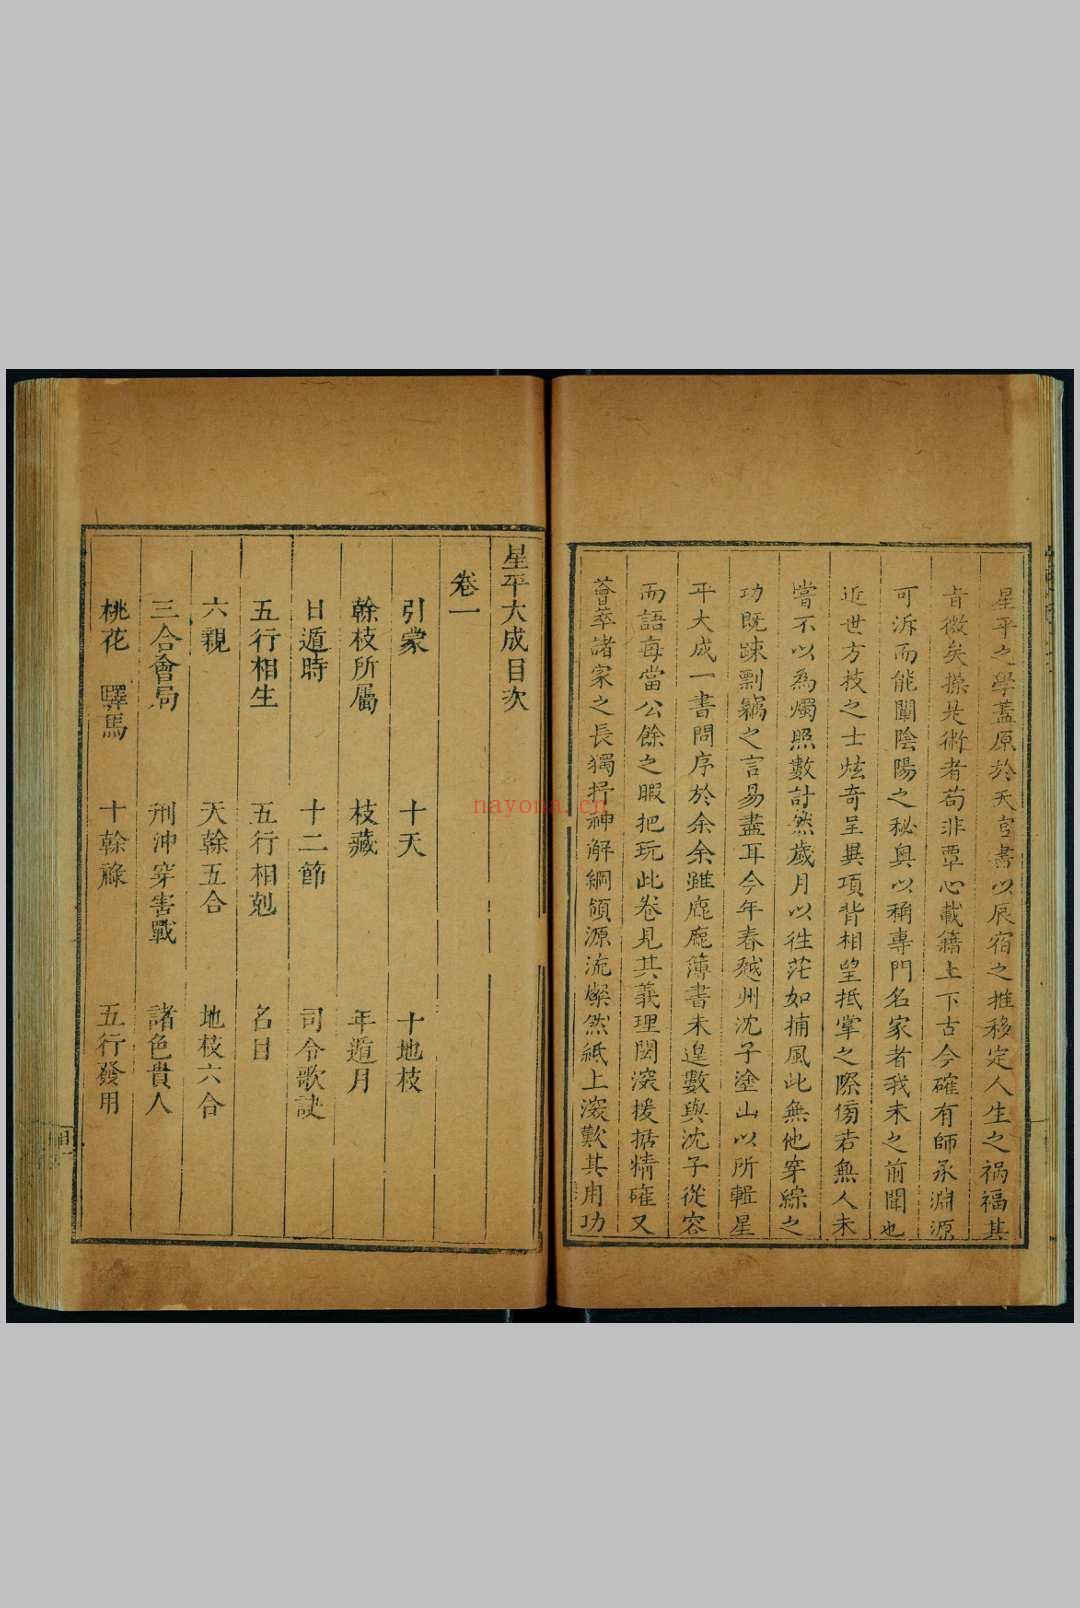 星平之學蓋原於天官書以辰宿之推移定人生之禍福其
旨微矣操是術者苟非覃心載籍上下古今確有師承淵源
可泝而能闡陰陽之秘奧以稱專門名家者我未之前聞也
近世方技之士炫奇呈異項背相望抵掌之際傍若無人未
嘗不以為燭照數計然歲月以徃茫如捕風此無他穿綜之
功既踈剽竊之言易盡耳今年春越州沈子塗山以所輯星
平大成一書問序於余余雖鹿鹿簿書未遑數與沈子從容
而語每當公餘之暇把玩此卷見其義理閎深援据精確又
薈萃諸家之長獨抒神解綱領源流燦然紙上深歎其用功
星平大成目次
卷一
引蒙 十天 十地枝
榦枝所屬 枝藏 年遁月
日遁時 十二節 司令歌訣
五行相生 五行相剋 名目
六親 天榦五合 地枝六合
三合會局 刑沖穿害戰 諸色貴人
桃花 驛馬 十榦祿 五行發用
nayona.cn